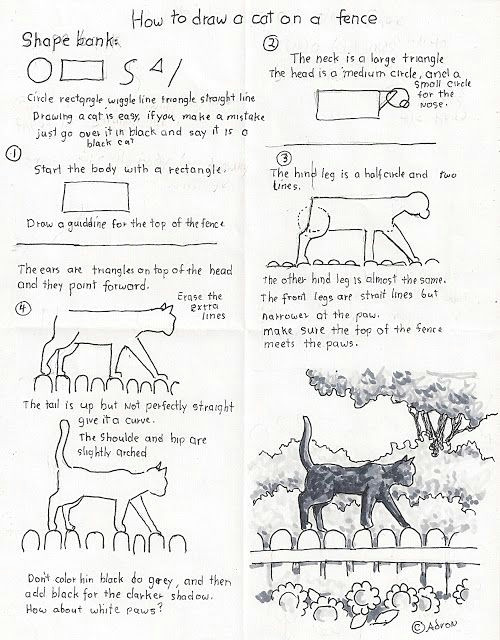 How to draw a cat on a fence
Shape bank:
Circle rectangle wiggle line triangle straight line
Drawing a cat is easy, if you make a mistake
just go over it in black and say it is a
black cat
1
Start the body with a rectangle.
Draw a guiddine for the top of the fence
2
The neck is a large triangle
The head is a medium circle, and a
small circle
for the
nose.
3
The hind leg is a half circle and two
lines.
The other hind leg is almost the same.
The front legs are strait lines but
narrower at the paw.
make sure the top of the fence
meets the paws.
The ears are triangles on top of the head
and they point forward.
4
Erase the
extra
lines
The tail is up but not perfectly straight
give it a curve.
The shoulde and hip are
slightly arched
Don't color him black do grey, and then
add black for the darker shadow.
How about white paws?
© Adron